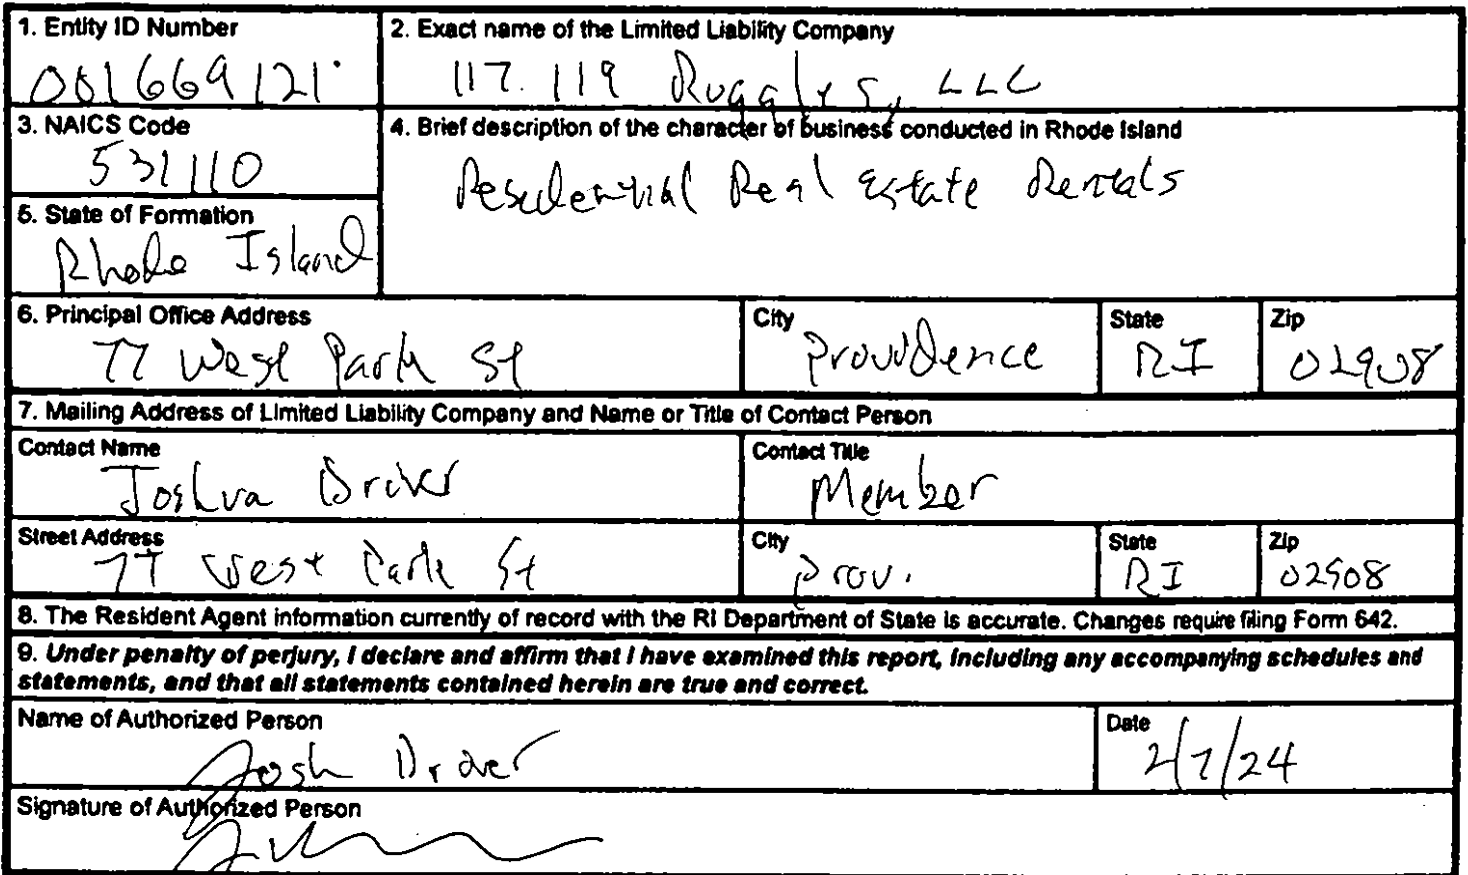 1. Entity ID Number
001669121
2. Exact name of the Limited Liability Company
117.119 Ruggles, LLC
3. NAICS Code
531110
4. Brief description of the character of business conducted in Rhode Island
Residential Real Estate Rentals
5. State of Formation
Rhode Island
6. Principal Office Address
77 West Park St
City
Providence
State
RI
Zip
02908
7. Mailing Address of Limited Liability Company and Name or Title of Contact Person
Contact Name
Joshua Driver
Contact Title
Member
Street Address
77 West Park St
City
Prov.
State
RI
Zip
02908
8. The Resident Agent information currently of record with the RI Department of State is accurate. Changes require filing Form 642.
9. Under penalty of perjury, I declare and affirm that I have examined this report, including any accompanying schedules and
statements, and that all statements contained herein are true and correct.
Name of Authorized Person
Josh Driver
Date
2/7/24
Signature of Authorized Person